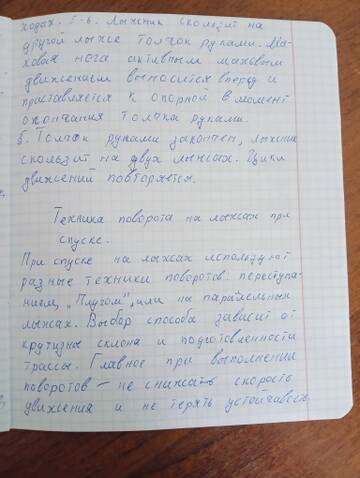 ходах. 5-6. Лыжник скользит на
другой лыже толчок руками. Ма-
ховая нога активным маховым
движением выносится вперёд и
приставляется к опорной в момент
окончания толчка руками.
5. Толчок руками закончен, лыжник
скользит на двух лыжах. Цикл
движений повторяется.
Техника поворота на лыжах при
спуске.
При спуске на лыжах используют
разные техники поворотов: переступа-
нием, „Плугом", или на параллельных
лыжах. Выбор способа зависит от
крутизны склона и подготовленности
трассы. Главное при выполнении
поворотов – не снижать скорость
движения и не терять устойчивость